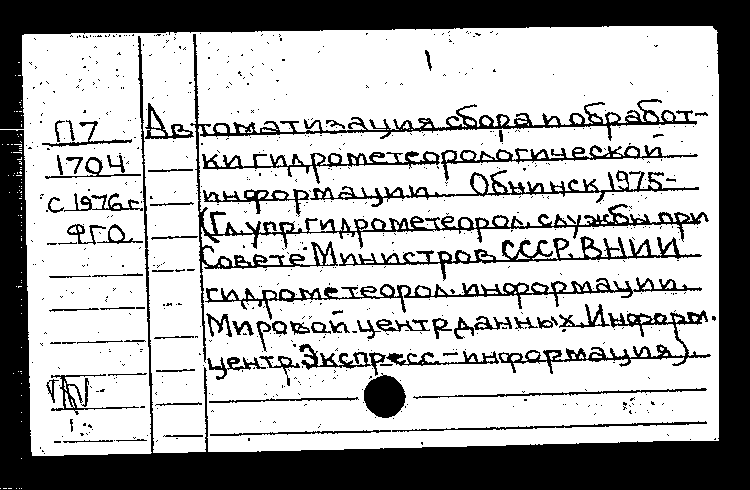 1
П7
1704
с 1976 г.
ФГО
Автоматизация сбора и обработ-
ки гидрометеорологической
информации. Обнинск, 1975-
(Гл. упр. гидрометеорол. службы при
Совете Министров СССР. ВНИИ
гидрометеорол. информации.
Мировой центр данных. Информ.
центр. Экспресс-информация).